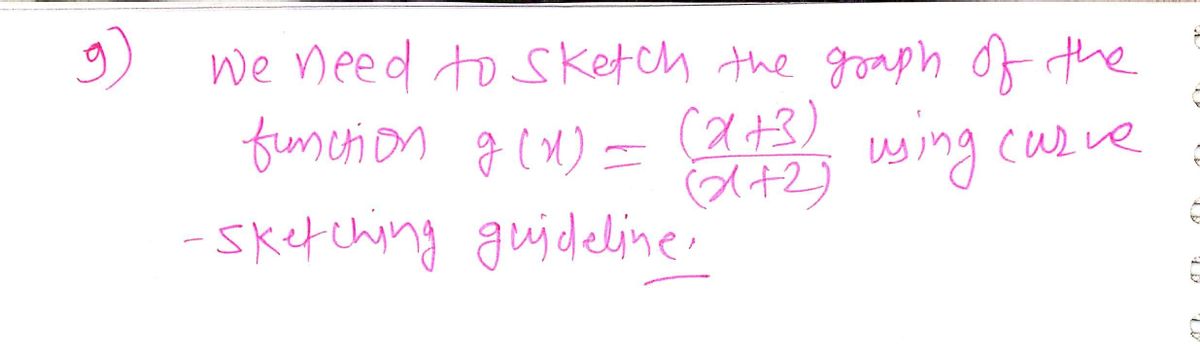 9) We need to sketch the graph of the
function g(x) = (x+3)/(x+2) using curve
-sketching guideline.